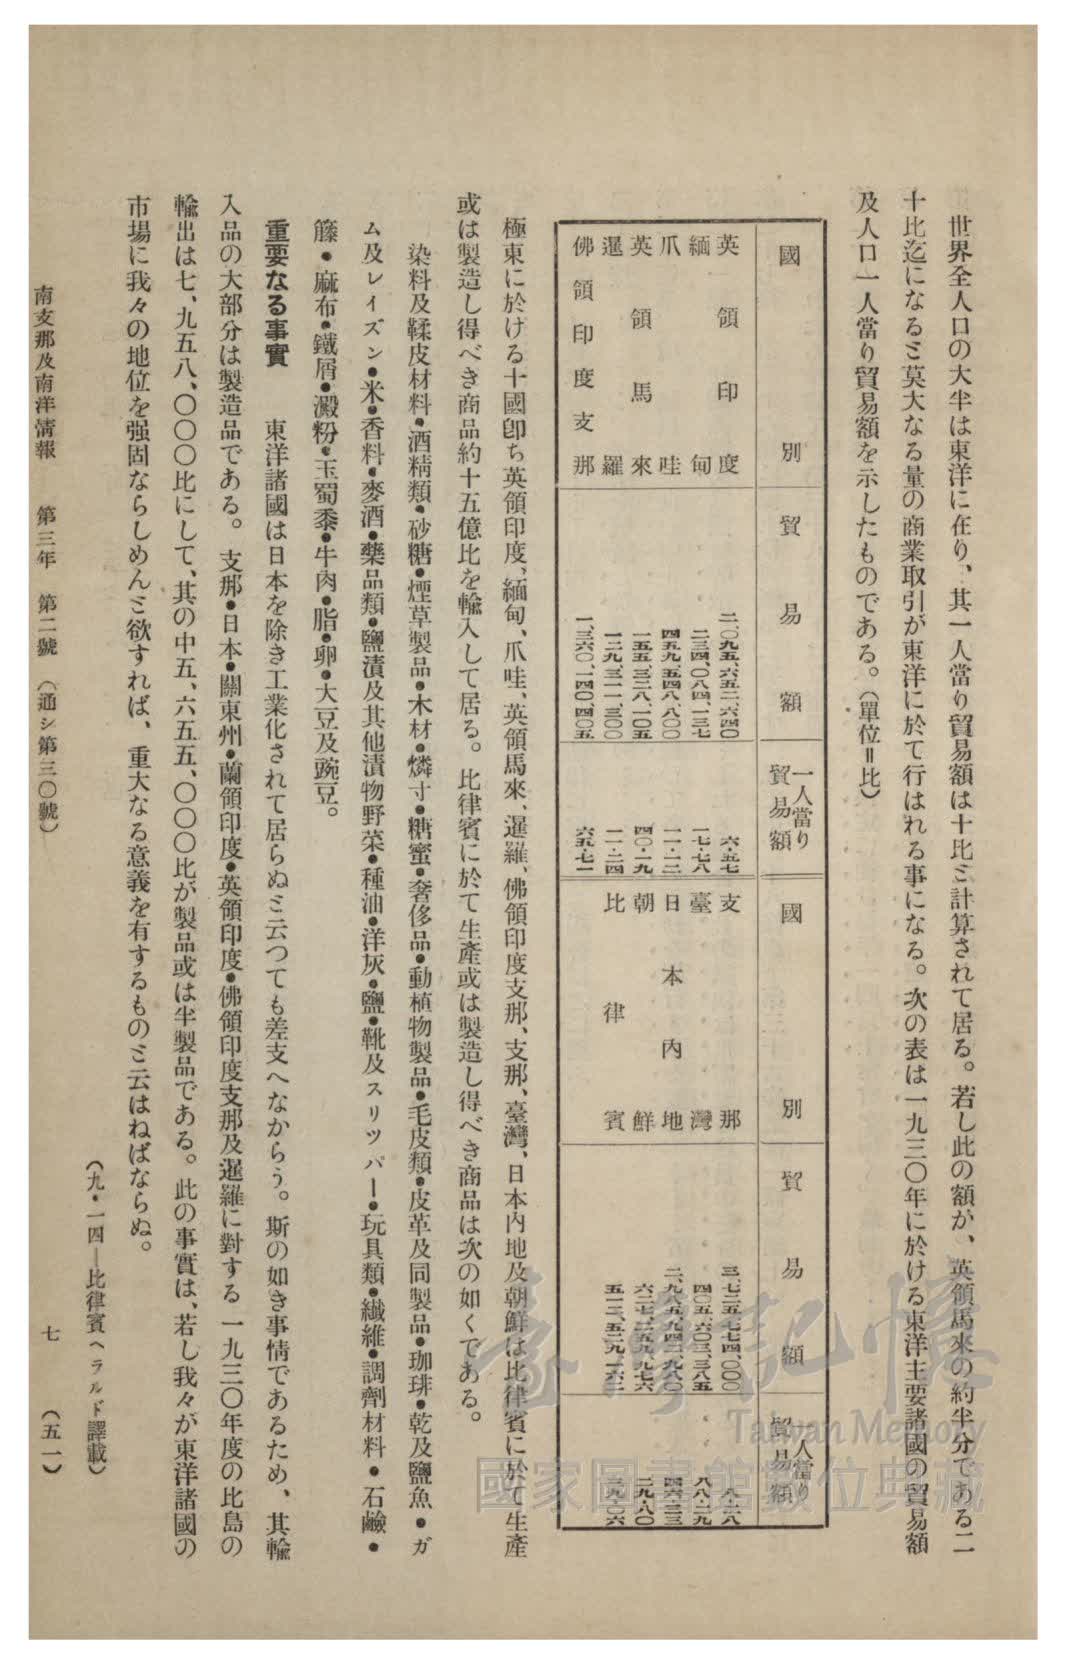 世界全人口の大半は東洋に在り、其一人當り貿易額は十比ミ計算されて居る。若し此の額が、英領馬來の約半分である二
十比迄になるミ莫大なる量の商業取引が東洋に於て行はれる事になる。次の表は一九三〇年に於ける東洋主要諸國の貿易額
及人口一人當り貿易額を示したものである。（單位＝比）
國別 貿易額 一人當り貿易額 國別 貿易額 一人當り貿易額
英領印度 二、〇九五、六五二、六四〇 六・五七 支那 三、七二五、七七四、〇〇〇 八・一八
緬甸 二三四、〇八四、一三七 一七・七八 臺灣 四〇五、六〇三、三八五 八八・二九
爪哇 四五九、五四八、八〇〇 一一・一二 日本內地 二、九八五、九四二、九八〇 四六・三三
英領馬來 一五五、三二八、一〇五 四〇・一九 朝鮮 六二七、二五九、九七六 二九・八〇
暹羅 一二九、三一一、三〇〇 一一・二四 比律賓 五一二、五二九、一六二 三九・〇六
佛領印度支那 一、三六〇、一四〇、四〇五 六五・七一
極東に於ける十國卽ち英領印度、緬甸、爪哇、英領馬來、暹羅、佛領印度支那、支那、臺灣、日本內地及朝鮮は比律賓に於て生產
或は製造し得べき商品約十五億比を輸入して居る。比律賓に於て生產或は製造し得べき商品は次の如くである。
染料及鞣皮材料・酒精類・砂糖・煙草製品・木材・燐寸・糖蜜・奢侈品・動植物製品・毛皮類・皮革及同製品・珈琲・乾及鹽魚・ガ
ム及レイズン・米・香料・麥酒・藥品類・鹽漬及其他漬物野菜・種油・洋灰・鹽・靴及スリッパー・玩具類・纖維・調劑材料・石鹼・
籐・麻布・鐵屑・澱粉・玉蜀黍・牛肉・脂・卵・大豆及豌豆。
重要なる事實 東洋諸國は日本を除き工業化されて居らぬミ云つても差支へなからう。斯の如き事情であるため、其輸
入品の大部分は製造品である。支那・日本・關東州・蘭領印度・英領印度・佛領印度支那及暹羅に對する一九三〇年度の比島の
輸出は七、九五八、〇〇〇比にして、其の中五、六五五、〇〇〇比が製品或は半製品である。此の事實は、若し我々が東洋諸國の
市場に我々の地位を强固ならしめんミ欲すれば、重大なる意義を有するものミ云はねばならぬ。
（九・一四—比律賓ヘラルド譯載）
南支那及南洋情報 第三年 第二號 （通シ第三〇號） 七 （五一）
臺灣記憶
Taiwan Memory
國家圖書館數位典藏